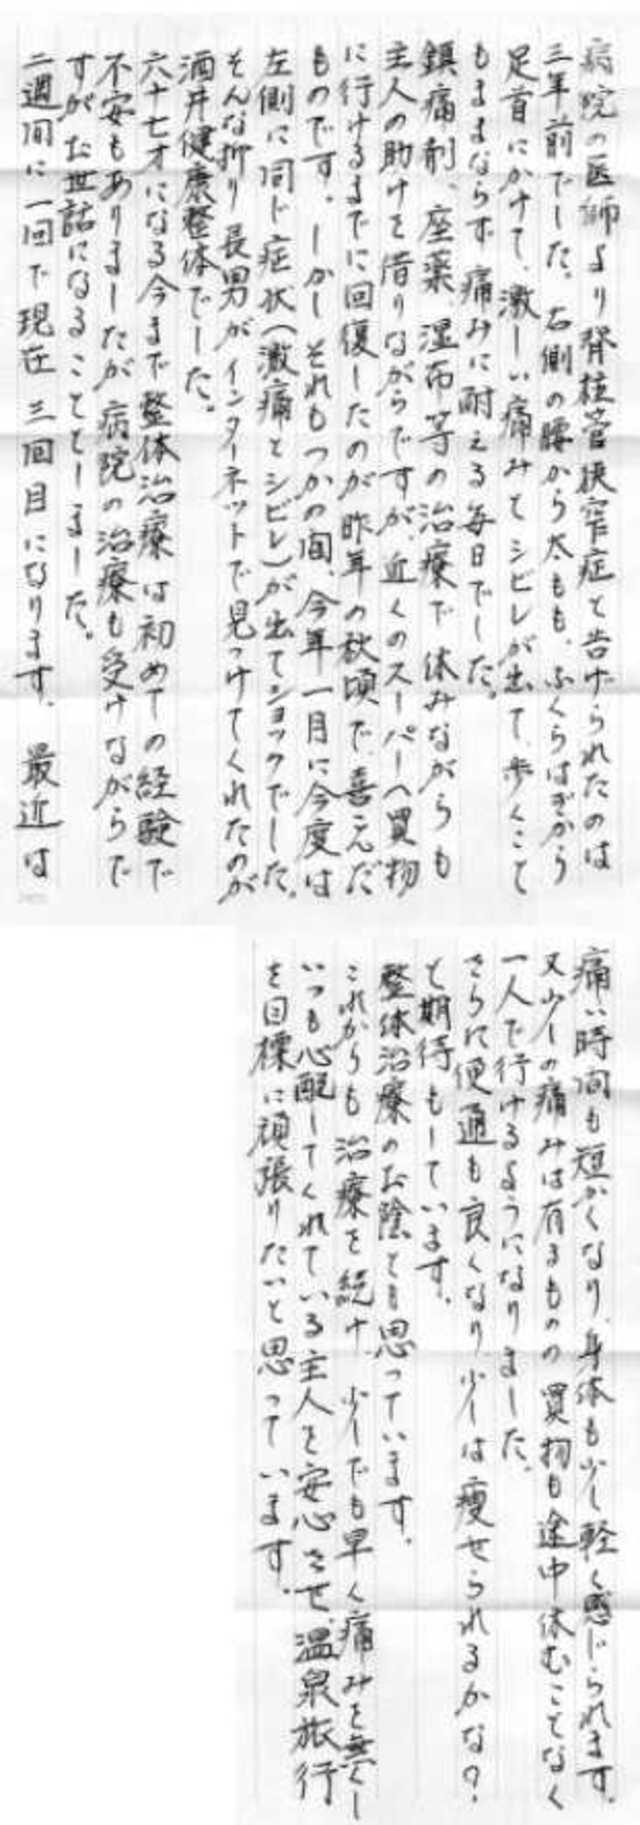 病院の医師より脊柱管狭窄症と告げられたのは
三年前でした。右側の腰から太もも、ふくらはぎから
足首にかけて、激しい痛みとシビレが出て、歩くこと
もままならず痛みに耐える毎日でした。
鎮痛剤、座薬、湿布等の治療で休みながらも
主人の助けを借りながらですが、近くのスーパーへ買物
に行けるまでに回復したのが昨年の秋頃で、喜んだ
ものです。しかしそれもつかの間、今年一月に今度は
左側に同じ症状(激痛とシビレ)が出てショックでした。
そんな折り長男がインターネットで見つけてくれたのが
酒井健康整体でした。
六十七才になる今まで整体治療は初めての経験で
不安もありましたが病院の治療も受けながらで
すがお世話になることとしました。
二週間に一回で現在三回目になります。最近は
痛い時間も短かくなり、身体も少し軽く感じられます。
又少しの痛みは有るものの買物も途中休むことなく
一人で行けるようになりました。
さらに便通も良くなり少しは痩せられるかな?
と期待もしています。
整体治療のお陰とも思っています。
これからも治療を続け、少しでも早く痛みを無くし
いつも心配してくれている主人を安心させ、温泉旅行
を目標に頑張りたいと思っています。